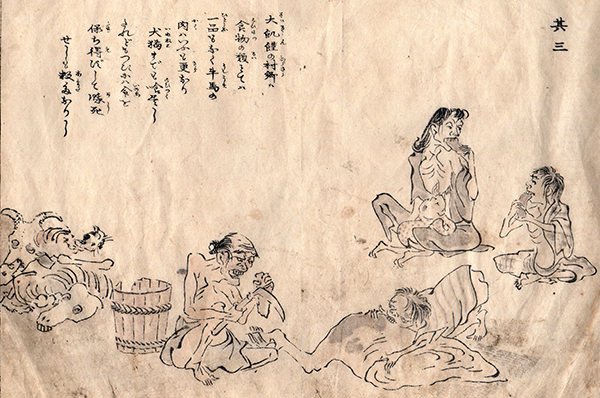 其三
大飢饉の村郷ハ
食物の種とてハ
一品もなく牛馬の
肉ハいふも更なり
犬猫までも喰尽し
されどもつひにハ命を
保ち得ずして餓死
せしも数多なりし